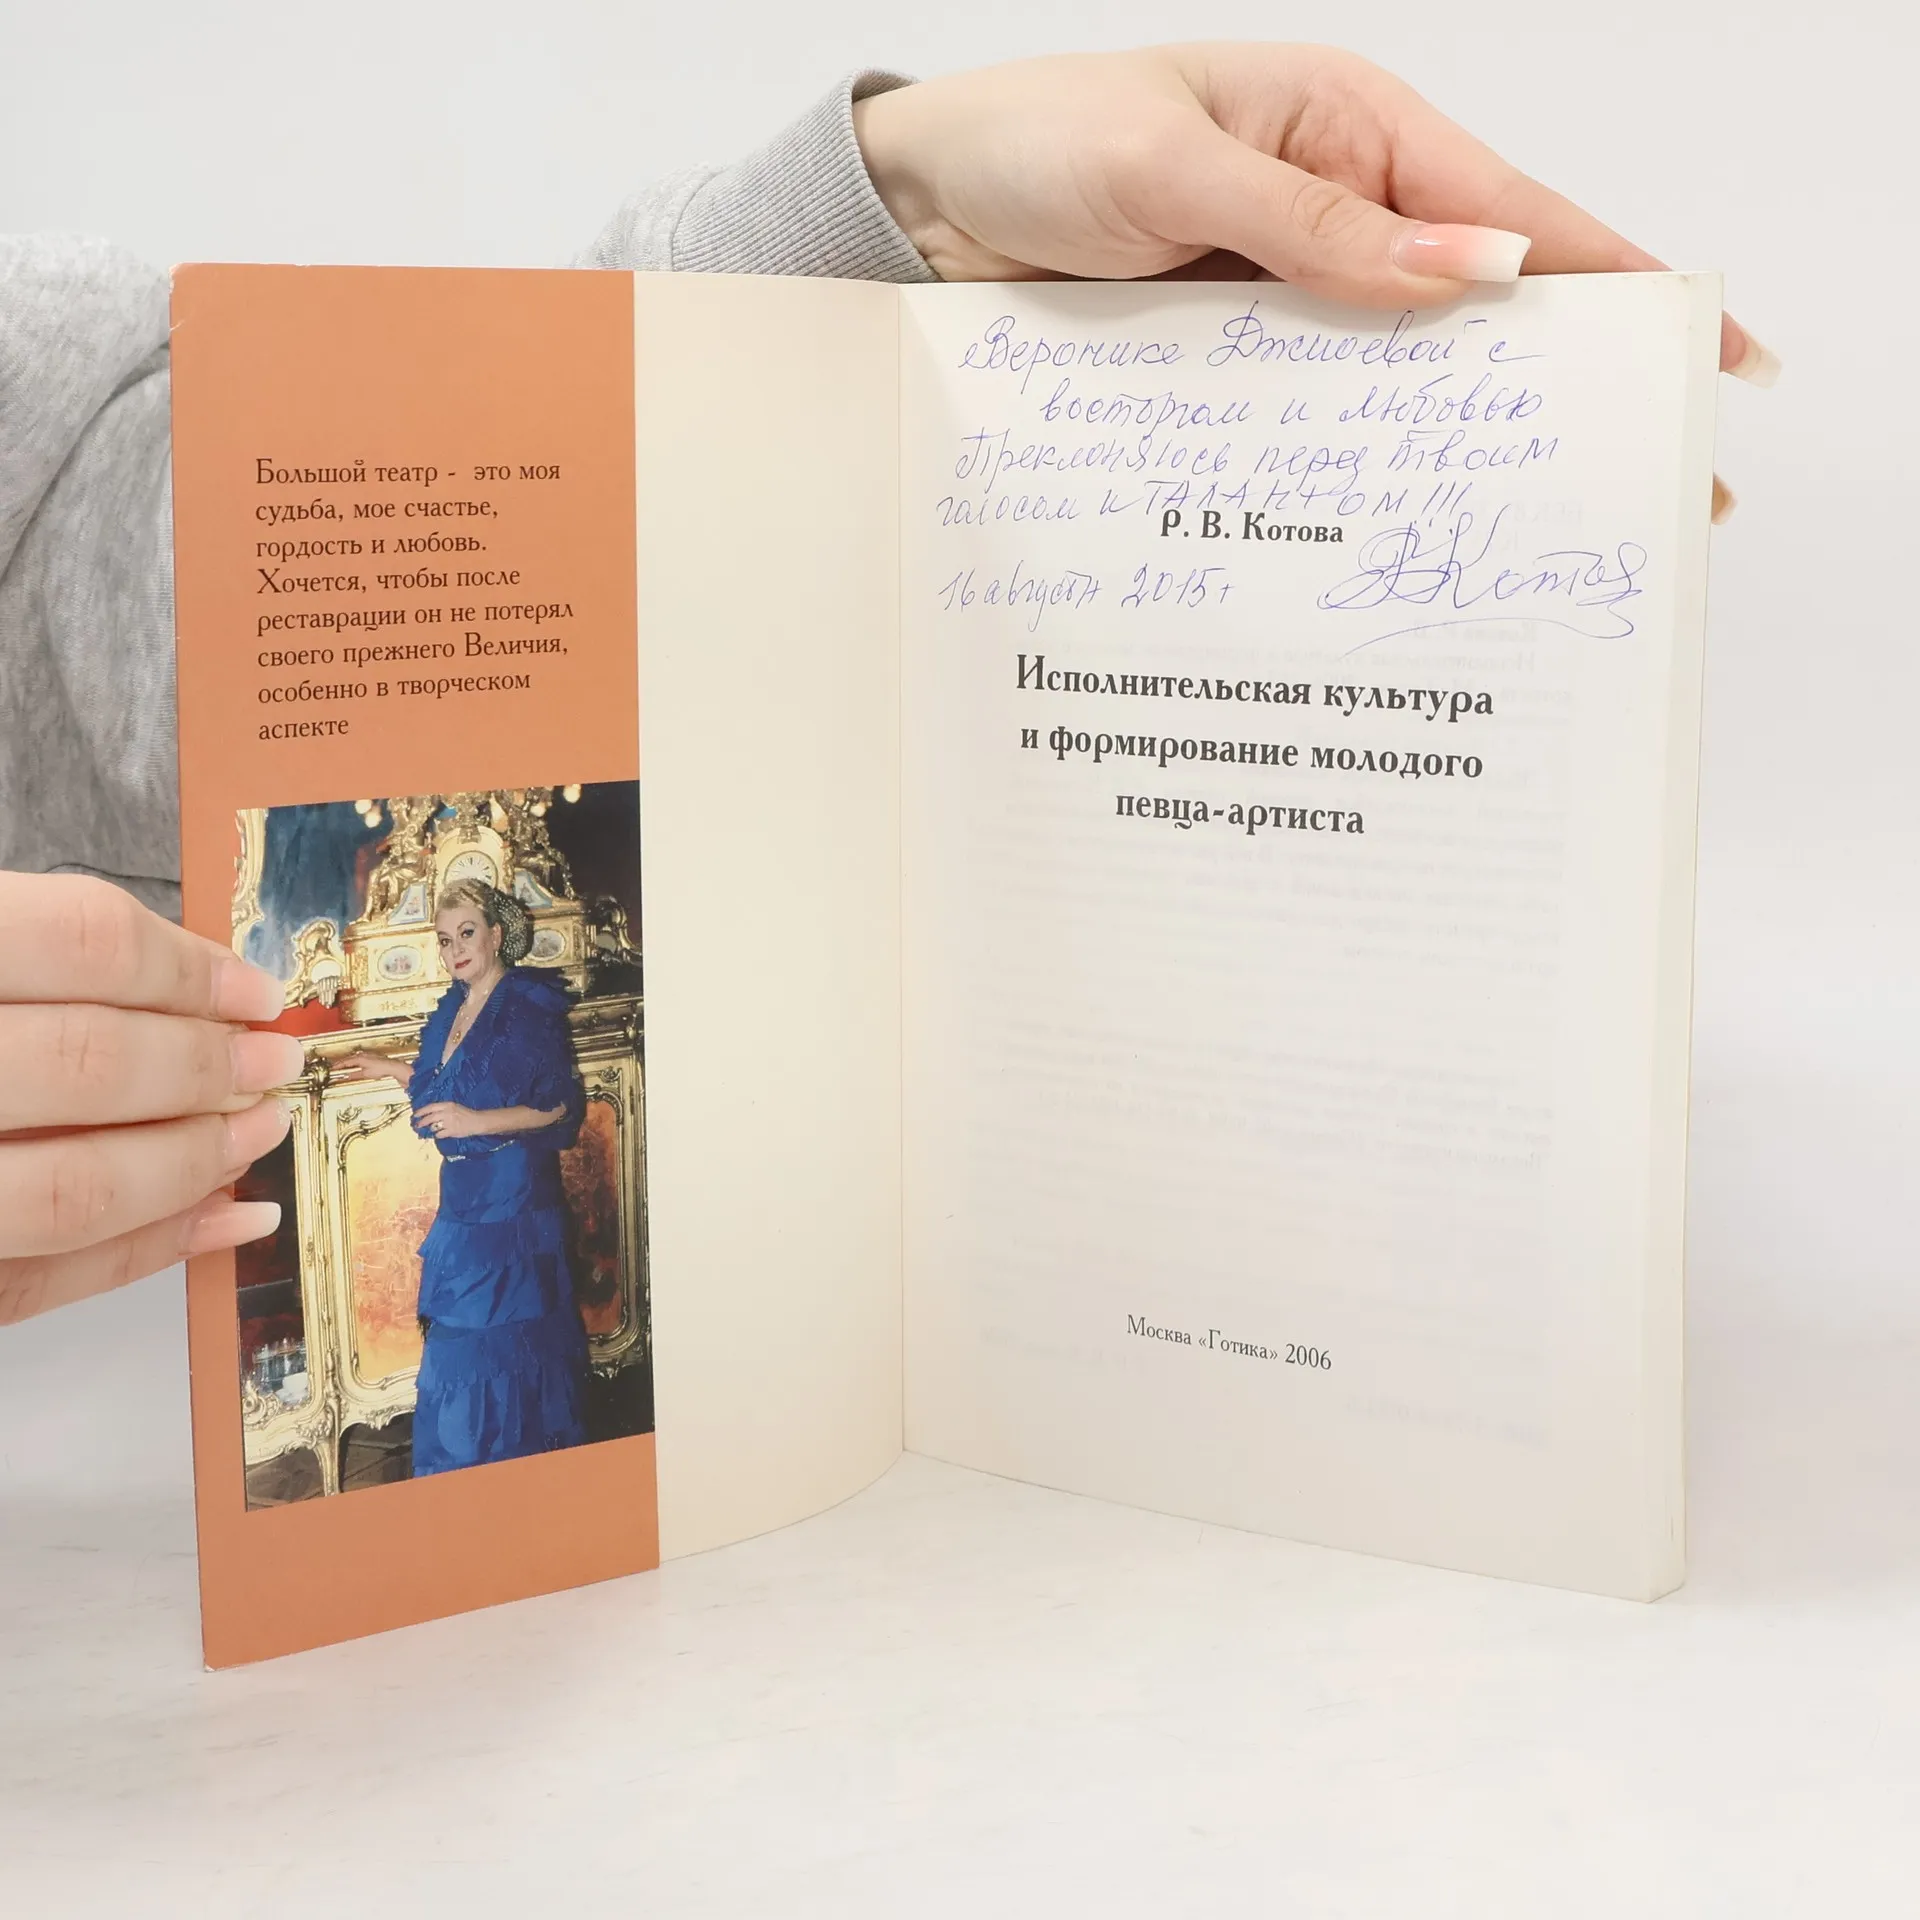 Большой театр - это моя
судьба, мое счастье,
гордость и любовь.
Хочется, чтобы после
реставрации он не потерял
своего прежнего Величия,
особенно в творческом
аспекте
Веронике Джиоевой с
восторгом и любовью
Преклоняюсь перед твоим
голосом и ТАЛАНТОМ!!!
Р. В. Котова
16 августа 2015г
Исполнительская культура
и формирование молодого
певца-артиста
Москва «Готика» 2006